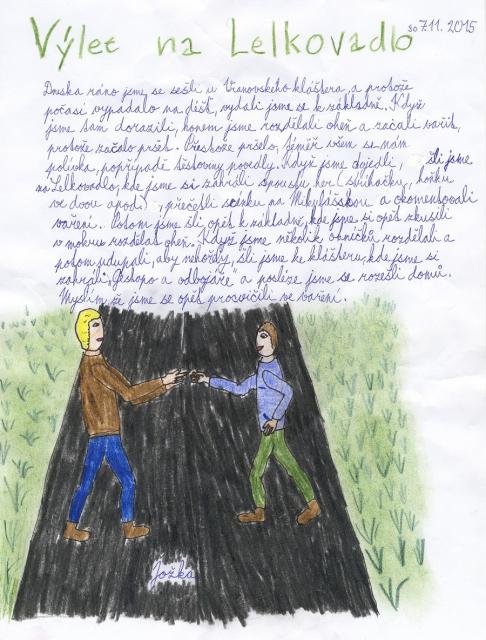 Výlet na Lelkovadlo
so 7.11. 2015
Dneska ráno jsme se sešli u Vranovského kláštera, a protože
počasí vypadalo na déšť, vydali jsme se k základně. Když
jsme tam dorazili, honem jsme rozdělali oheň a začali vařit,
protože začalo pršet. Přestože pršelo, téměř všem se nám
polívka, popřípadě těstoviny povedly. Když jsme dojedli, šli jsme
na Lelkovadlo, kde jsme si zahráli spoustu her (švihačku, honku
ve dvou apod.), přečetli scénku na Mikulášskou a okomentovali
vaření. Potom jsme šli opět k základně, kde jsme si opět zkusili
v mokru rozdělat oheň. Když jsme několik ohníčků rozdělali a
potom udupali, aby nehořely, šli jsme ke klášteru, kde jsme si
zahráli „Gestapo a odbojáře" a posléze jsme se rozešli domů.
Myslím že jsme se opět procvičili ve vaření.
Jožka